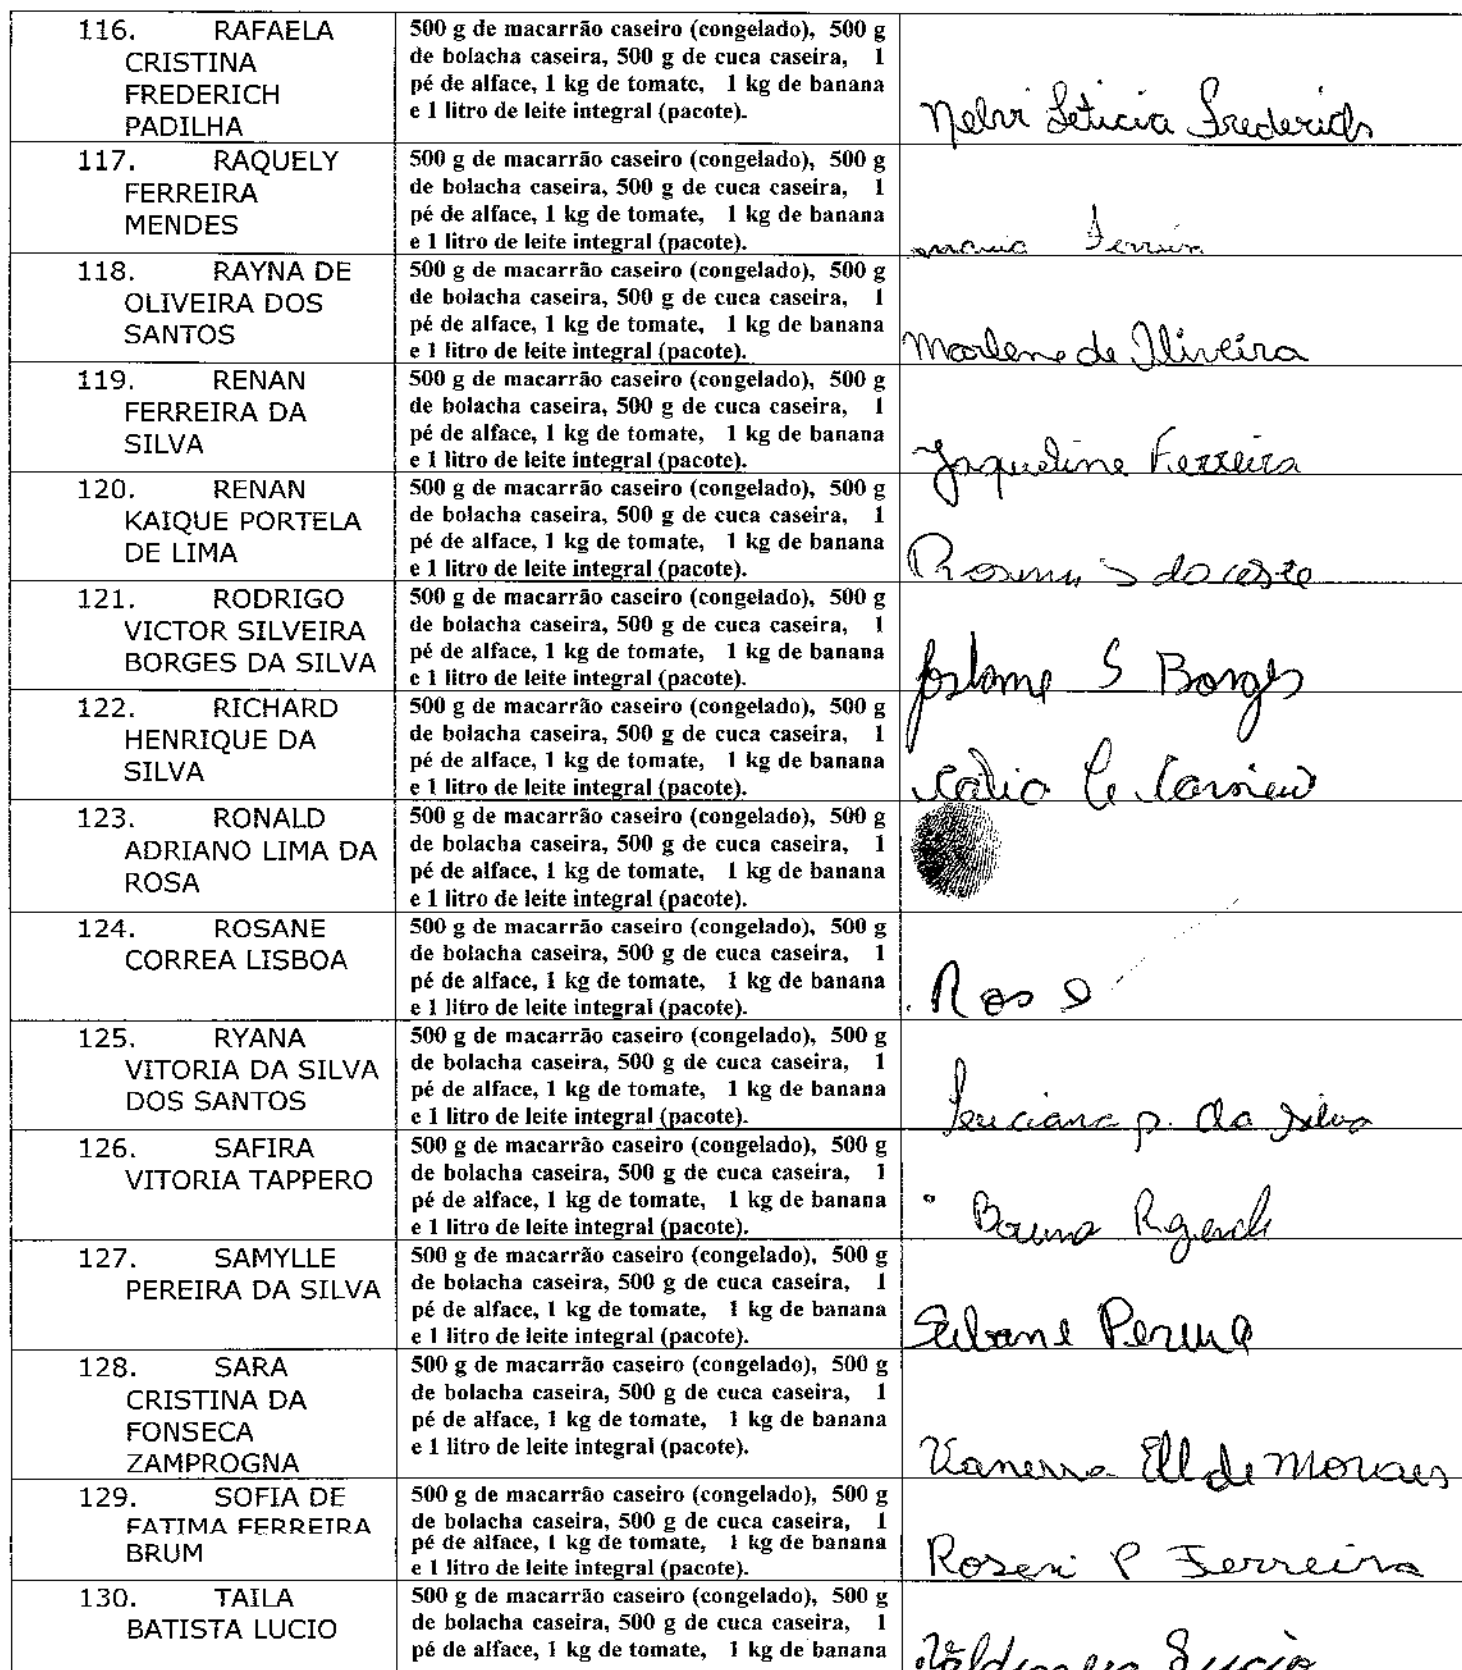 116. RAFAELA
CRISTINA
FREDERICH
PADILHA
500 g de macarrão caseiro (congelado), 500 g
de bolacha caseira, 500 g de cuca caseira, 1
pé de alface, 1 kg de tomate, 1 kg de banana
e 1 litro de leite integral (pacote).
Leticia Frederich
117. RAQUELY
FERREIRA
MENDES
500 g de macarrão caseiro (congelado), 500 g
de bolacha caseira, 500 g de cuca caseira, 1
pé de alface, 1 kg de tomate, 1 kg de banana
e 1 litro de leite integral (pacote).
118. RAYNA DE
OLIVEIRA DOS
SANTOS
500 g de macarrão caseiro (congelado), 500 g
de bolacha caseira, 500 g de cuca caseira, 1
pé de alface, 1 kg de tomate, 1 kg de banana
e 1 litro de leite integral (pacote).
Marlene de Oliveira
119. RENAN
FERREIRA DA
SILVA
500 g de macarrão caseiro (congelado), 500 g
de bolacha caseira, 500 g de cuca caseira, 1
pé de alface, 1 kg de tomate, 1 kg de banana
e 1 litro de leite integral (pacote).
Jaqueline Ferreira
120. RENAN
KAIQUE PORTELA
DE LIMA
500 g de macarrão caseiro (congelado), 500 g
de bolacha caseira, 500 g de cuca caseira, 1
pé de alface, 1 kg de tomate, 1 kg de banana
e 1 litro de leite integral (pacote).
121. RODRIGO
VICTOR SILVEIRA
BORGES DA SILVA
500 g de macarrão caseiro (congelado), 500 g
de bolacha caseira, 500 g de cuca caseira, 1
pé de alface, 1 kg de tomate, 1 kg de banana
e 1 litro de leite integral (pacote).
S Borges
122. RICHARD
HENRIQUE DA
SILVA
500 g de macarrão caseiro (congelado), 500 g
de bolacha caseira, 500 g de cuca caseira, 1
pé de alface, 1 kg de tomate, 1 kg de banana
e 1 litro de leite integral (pacote).
123. RONALD
ADRIANO LIMA DA
ROSA
500 g de macarrão caseiro (congelado), 500 g
de bolacha caseira, 500 g de cuca caseira, 1
pé de alface, 1 kg de tomate, 1 kg de banana
e 1 litro de leite integral (pacote).
124. ROSANE
CORREA LISBOA
500 g de macarrão caseiro (congelado), 500 g
de bolacha caseira, 500 g de cuca caseira, 1
pé de alface, 1 kg de tomate, 1 kg de banana
e 1 litro de leite integral (pacote).
Rose
125. RYANA
VITORIA DA SILVA
DOS SANTOS
500 g de macarrão caseiro (congelado), 500 g
de bolacha caseira, 500 g de cuca caseira, 1
pé de alface, 1 kg de tomate, 1 kg de banana
e 1 litro de leite integral (pacote).
Luciana p. da Silva
126. SAFIRA
VITORIA TAPPERO
500 g de macarrão caseiro (congelado), 500 g
de bolacha caseira, 500 g de cuca caseira, 1
pé de alface, 1 kg de tomate, 1 kg de banana
e 1 litro de leite integral (pacote).
127. SAMYLLE
PEREIRA DA SILVA
500 g de macarrão caseiro (congelado), 500 g
de bolacha caseira, 500 g de cuca caseira, 1
pé de alface, 1 kg de tomate, 1 kg de banana
e 1 litro de leite integral (pacote).
128. SARA
CRISTINA DA
FONSECA
ZAMPROGNA
500 g de macarrão caseiro (congelado), 500 g
de bolacha caseira, 500 g de cuca caseira, 1
pé de alface, 1 kg de tomate, 1 kg de banana
e 1 litro de leite integral (pacote).
Vanessa Ell de Moraes
129. SOFIA DE
FATIMA FERREIRA
BRUM
500 g de macarrão caseiro (congelado), 500 g
de bolacha caseira, 500 g de cuca caseira, 1
pé de alface, 1 kg de tomate, 1 kg de banana
e 1 litro de leite integral (pacote).
Roseni P Ferreira
130. TAILA
BATISTA LUCIO
500 g de macarrão caseiro (congelado), 500 g
de bolacha caseira, 500 g de cuca caseira, 1
pé de alface, 1 kg de tomate, 1 kg de banana
Lucio